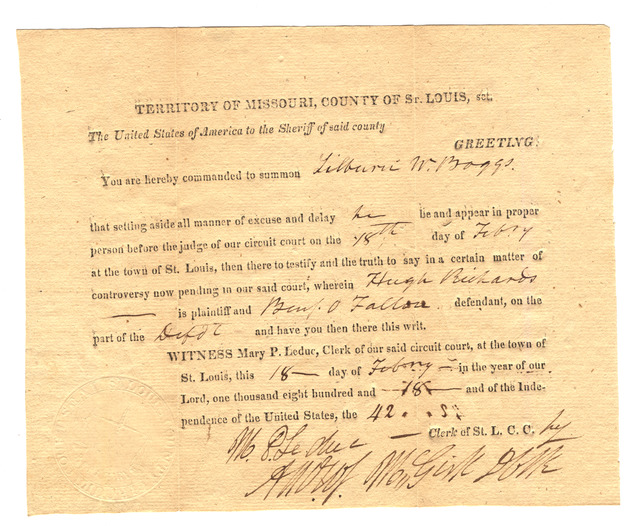 TERRITORY OF MISSOURI, COUNTY OF ST. LOUIS, sct.
The United States of America to the Sheriff of said county
GREETING:
You are hereby commanded to summon Lilburn W. Boggs.
that setting aside all manner of excuse and delay he be and appear in proper
person before the judge of our circuit court on the 18th day of Febry
at the town of St. Louis, then there to testify and the truth to say in a certain matter of
controversy now pending in our said court, wherein Hugh Richards
— is plaintiff and Benj. O Fallon. defendant, on the
part of the Defdt and have you then there this writ.
WITNESS Mary P. Leduc, Clerk of our said circuit court, at the town of
St. Louis, this 18 — day of Febry — in the year of our
Lord, one thousand eight hundred and — 18 — and of the Inde-
pendence of the United States, the 42.
M. P. Leduc — Clerk of St. L. C. C. by
McGirk